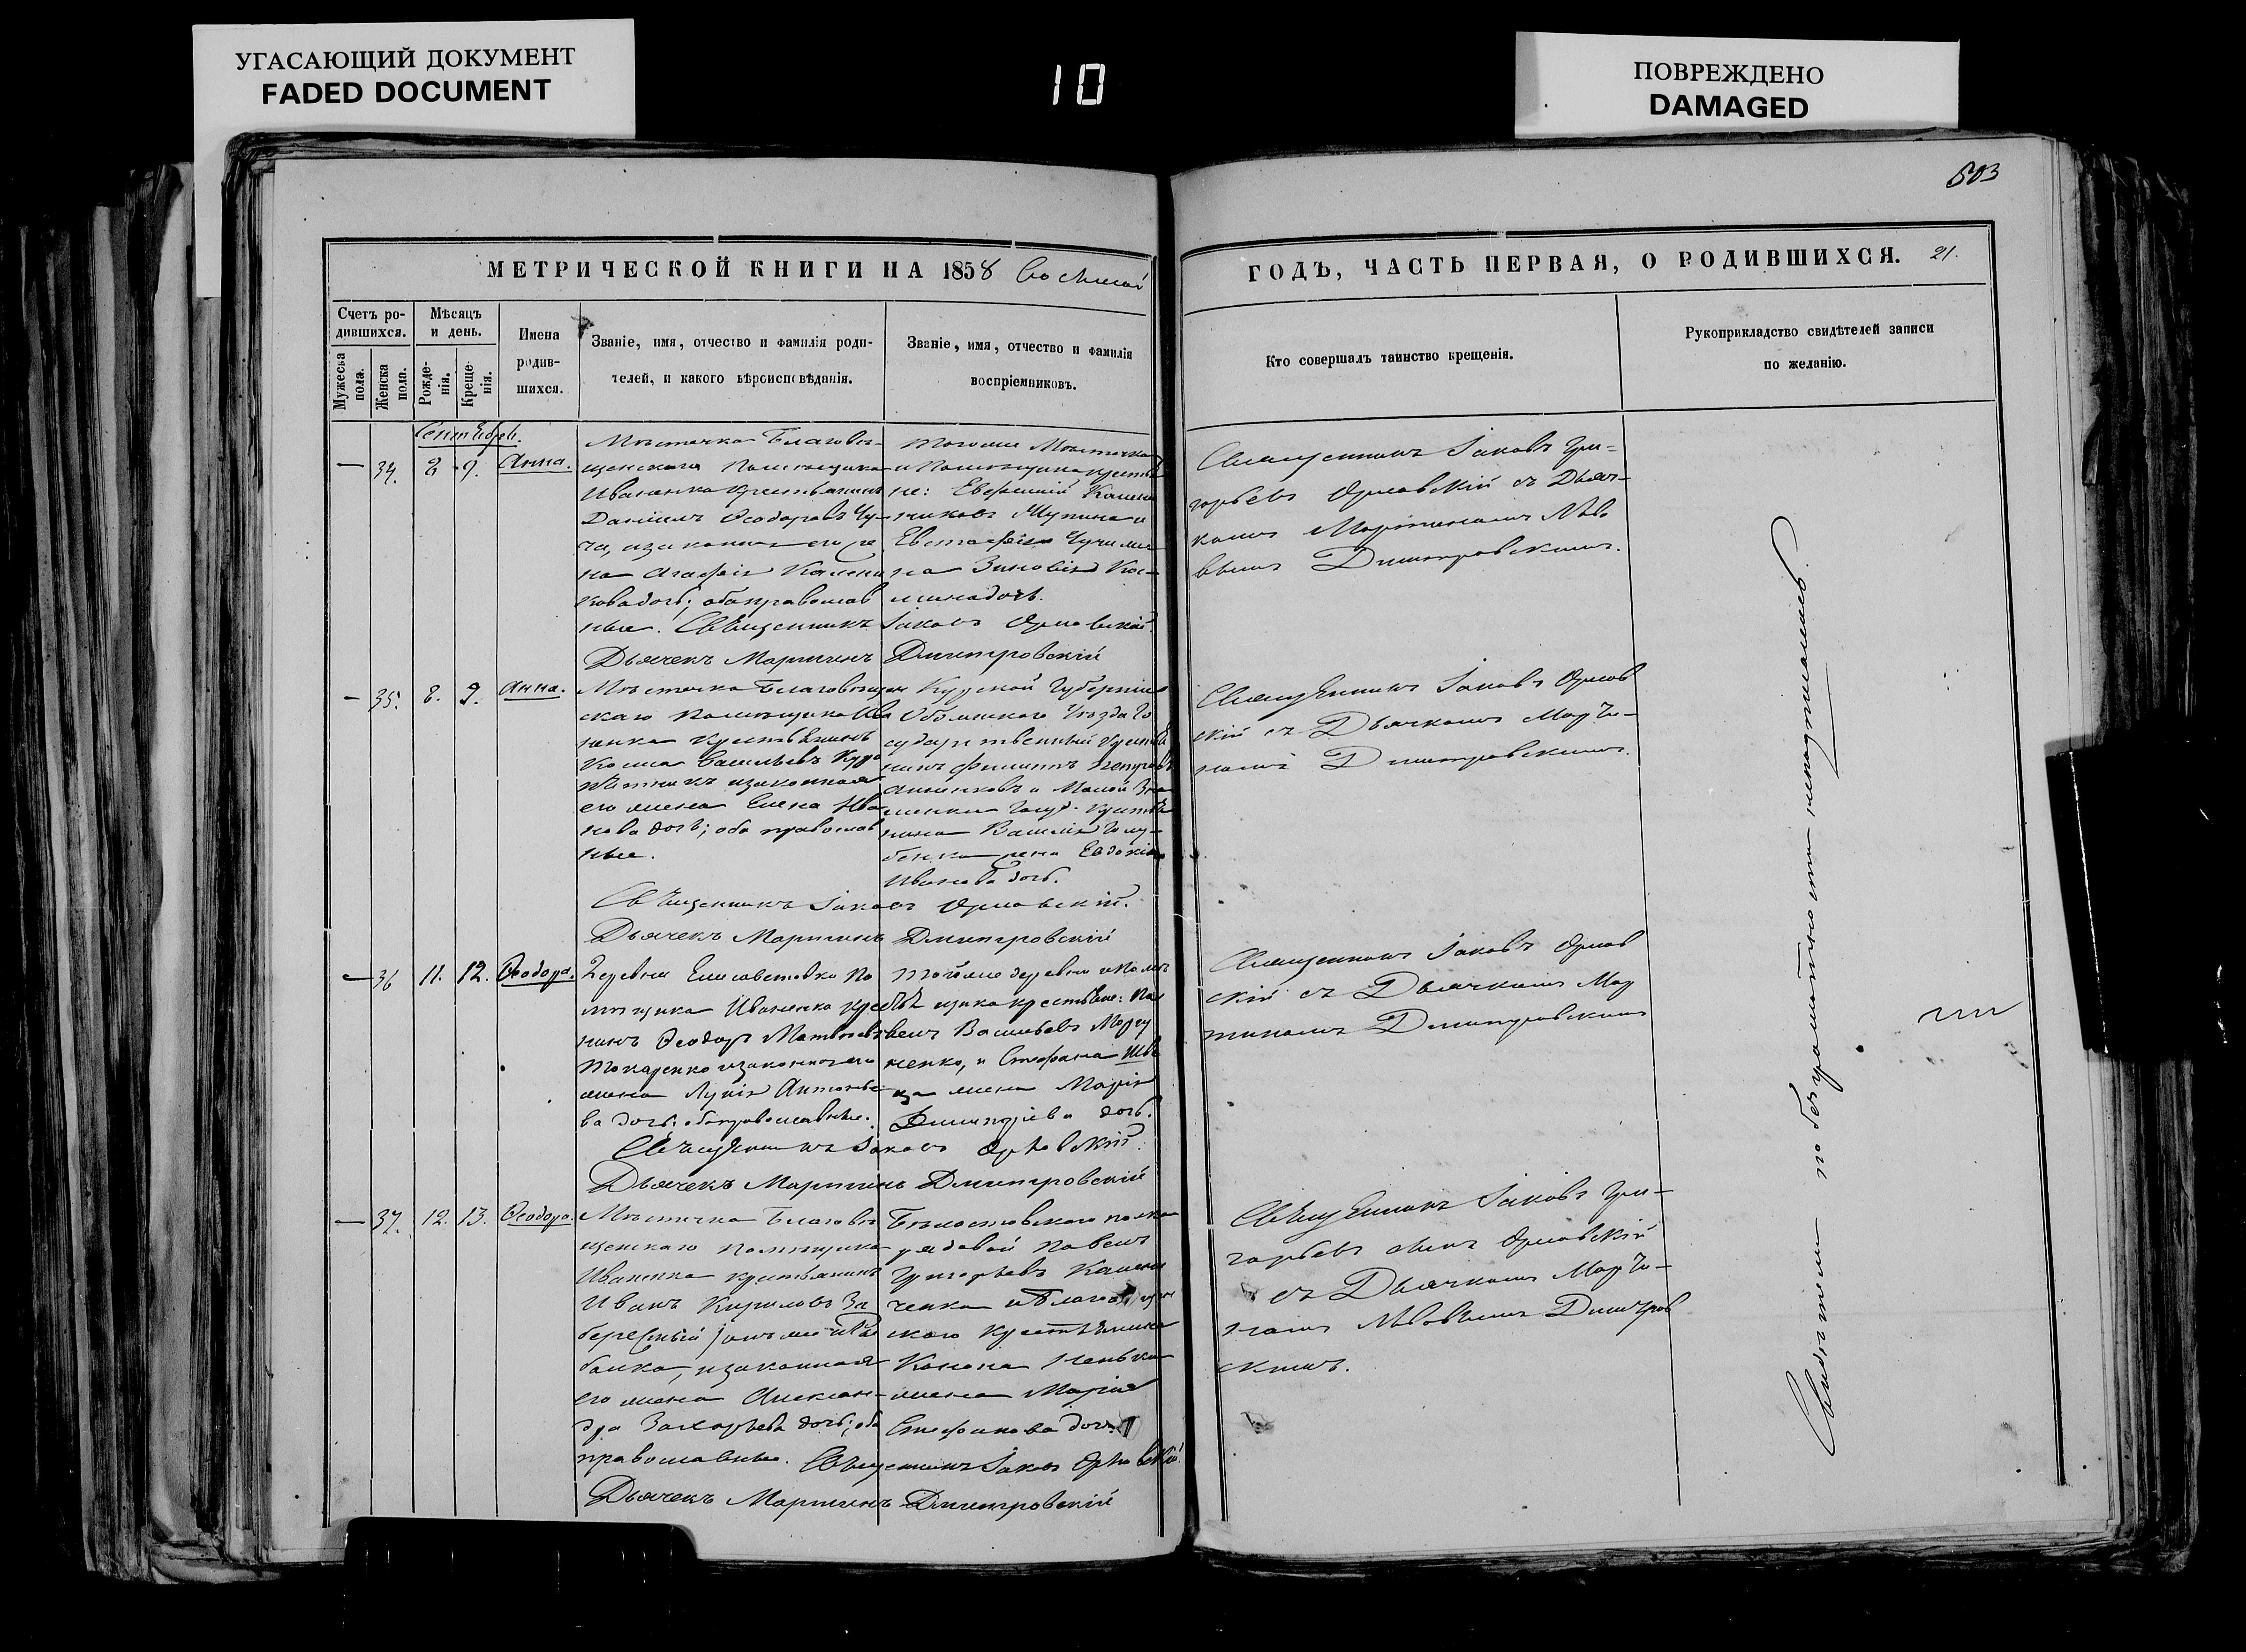 УГАСАЮЩИЙ ДОКУМЕНТ
FADED DOCUMENT
10
ПОВРЕЖДЕНО
DAMAGED
503
МЕТРИЧЕСКОЙ КНИГИ НА 1858
ГОДЪ, ЧАСТЬ ПЕРВАЯ, О РОДИВШИХСЯ. 21.
Счетъ ро-
дившихся.
Мужеска пола.
Женска пола.
Мѣсяцъ
и день.
Рожде-
нія.
Креще-
нія.
Имена
родив-
шихся.
Званіе, имя, отчество и фамилія роди-
телей, и какого вѣроисповѣданія.
Званіе, имя, отчество и фамилія
воспріемниковъ.
Кто совершалъ таинство крещенія.
Рукоприкладство свидѣтелей записи
по желанію.
Сентября.
— 34. 9. Анна.
Мѣстечка Благовѣ-
щенскаго Помѣщика
Иваненка крестьянинъ
Даніилъ Ѳеодоровъ
законная его же-
на Агафія
дочь; оба православ
ные. Священникъ Іаковъ Орловскій.
Дьячекъ Мартинъ Дмитровскій
тогоже Мѣстечка
и Помѣщика крестья
не: Евфимій
на Зиновія Кос-
мина дочь.
Священникъ Іаковъ Гри-
горьевъ Орловскій съ Дьяч-
комъ Мартиномъ Льво
вымъ Дмитровскимъ.
— 35. 8. 9. Анна.
Мѣстечка Благовѣщен
скаго помѣщика Ива
ненка крестьянинъ
Косма Васильевъ
законная
его жена Елена Ива
нова дочь; оба православ
ные.
Курской Губерніи
Обоянскаго Уѣзда Го
сударственный крестья
нинъ Филиппъ Петровъ
и Малой Зна
менки Госуд. крестья
нина Василія Голу-
бенка жена Евдокія
Иванова дочь.
Священникъ Іаковъ Орловскій.
Дьячекъ Мартинъ Дмитровскій
Священникъ Іаковъ Орлов
скій съ Дьячкомъ Марти-
номъ Дмитровскимъ.
— 36 11. 12. Ѳеодора.
Деревни Елисаветовки по
мѣщика Иваненка крестья
нинъ Ѳеодоръ Матвѣевъ
Токаренко законная его
жена Лукія Антоніе
ва дочь; оба православные.
тойже деревни и помѣ
щика крестьяне: Па
велъ Васильевъ
и Стефана Шев
ца жена Марія
Димитріева дочь.
Священникъ Іаковъ Орловскій.
Дьячекъ Мартинъ Дмитровскій
Священникъ Іаковъ Орлов
скій съ Дьячкомъ Мар
тиномъ Дмитровскимъ
— 37. 12. 13. Ѳеодора.
Мѣстечка Благовѣ
щенскаго помѣщика
Иваненка крестьянинъ
Иванъ Кириловъ За
бережный
законная
его жена Алексан-
дра Захарьева дочь; оба
православные. Священникъ Іаковъ Орловскій.
Дьячекъ Мартинъ Дмитровскій
Бѣлостокскаго полка
рядовой Павелъ
Григорьевъ
скаго крестьянина
Конона
жена Марія
Стефанова дочь
Священникъ Іаковъ Гри-
горьевъ сынъ Орловскій
съ Дьячкомъ Марти-
номъ Львовымъ Дмитров
скимъ.
Свидѣтели по безграмотности неподписались.